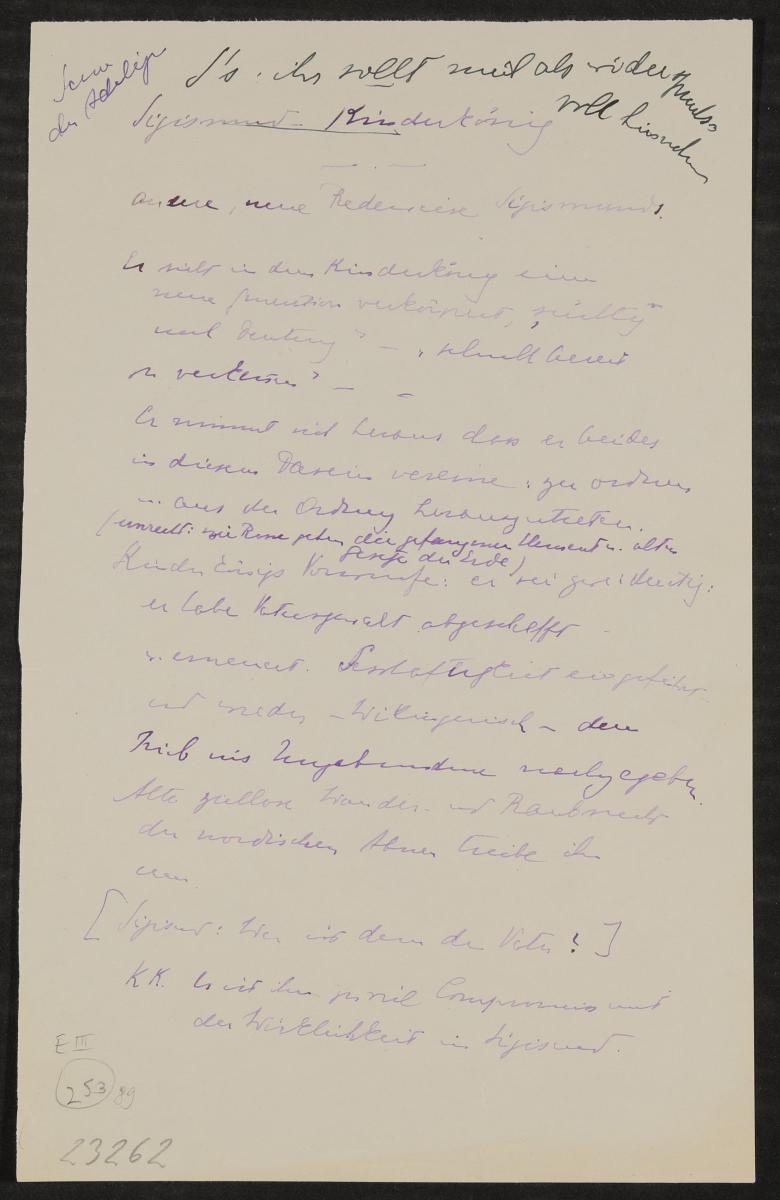 Scene
der Adelige
S's. ihr sollt mich als widerspruchs
voll hinnehmen
Sigismund – Kinderkönig
andere, neue Redeweise Sigismunds.
Er sieht in dem Kinderkönig eine
neue Function verkörpert,
und Deutung" – "schnell bereit
zu verkennen" –
Er nimmt sich heraus dass er beides
in diesem Dasein vereine: zu ordnen
u. aus der Ordnung herauszutreten.
(unrecht: wie Rosse gehen die gefangenen Element u. alten
der Erde)
Kinderkönigs Vorwürfe: er sei zweideutig:
er habe Vatersgewalt abgeschafft
u. erneuert. Sesshaftigkeit eingeführt
und wieder – wikingerisch – dem
Trieb ins Ungebundene nachgegeben.
Alte zuellose Wander- und Raubsucht
der nordischen Ahnen treibe ihn
um
[Sigismund: Wer ist denn der Vater? ]
KK. Es ist ihm zuviel Compromiss mit
der Wirklichkeit in Sigismund.
E III
253 89
23262